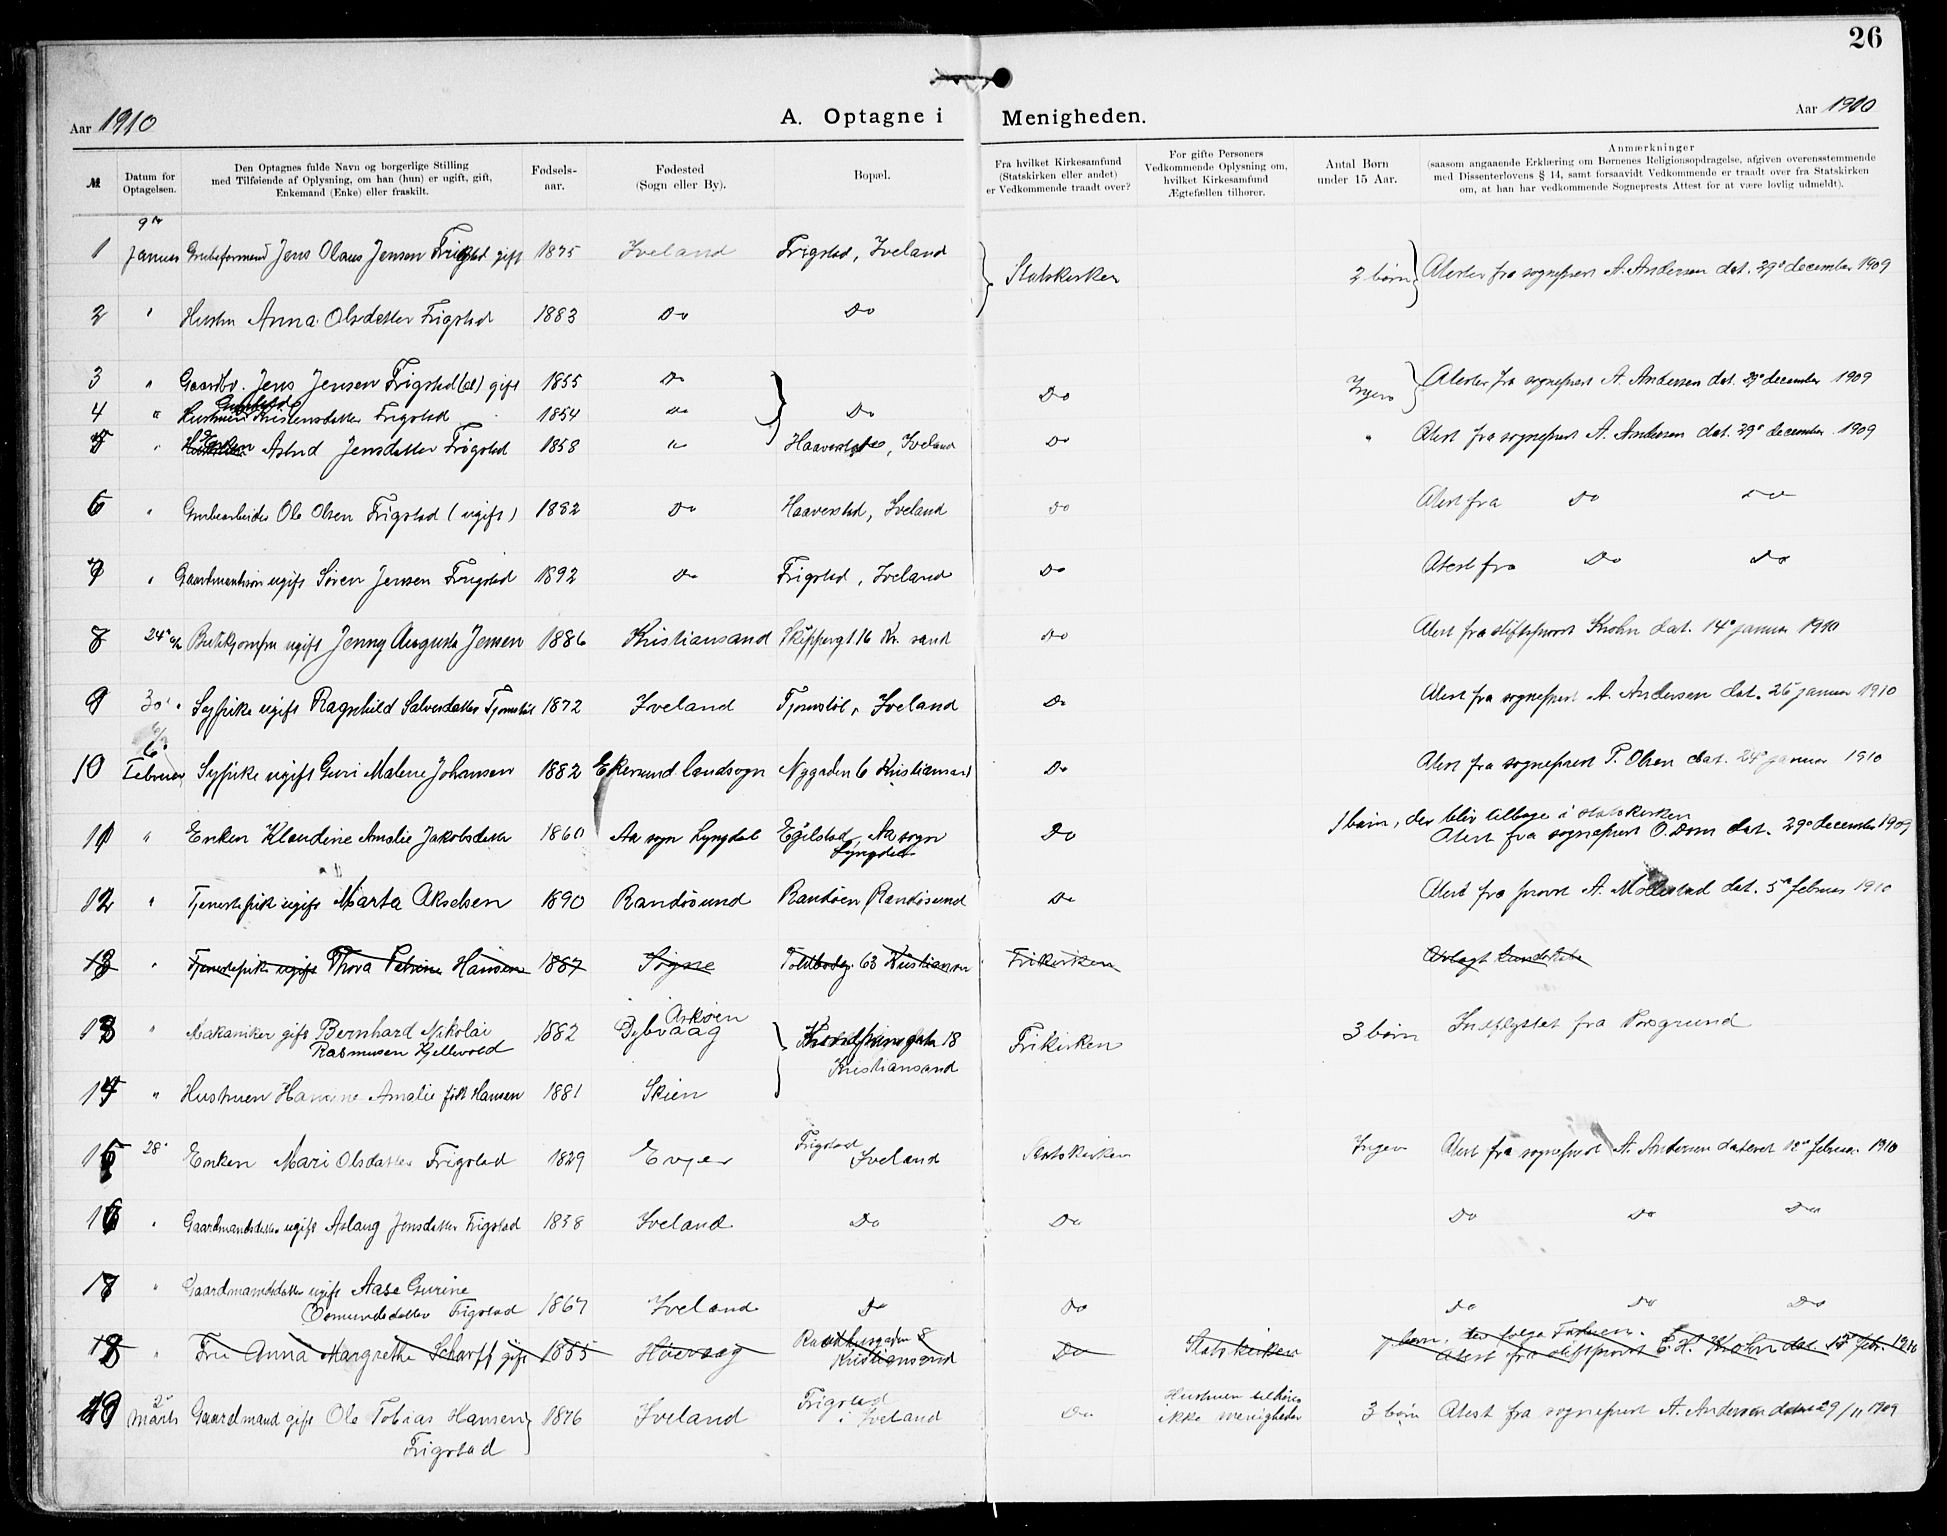 26
Aar 1910 A. Optagne i Menigheden. Aar 1910
№
Datum for
Optagelsen.
Den Optagnes fulde Navn og borgerlige Stilling
med Tilføiende af Oplysning, om han (hun) er ugift, gift,
Enkemand (Enke) eller fraskilt.
Fødsels-
aar.
Fødested
(Sogn eller By).
Bopæl.
Fra hvilket Kirkesamfund
(Statskirken eller andet)
er Vedkommende traadt over?
For gifte Personers
Vedkommende Oplysning om,
hvilket Kirkesamfund
Ægtefællen tilhører.
Antal Børn
under 15 Aar.
Anmærkninger
(saasom angaaende Erklæring om Børnenes Religionsopdragelse, afgiven overensstemmende
med Dissenterlovens § 14, samt forsaavidt Vedkommende er traadt over fra Statskirken
om, at han har vedkommende Sogneprests Attest for at være lovlig udmeldt).
9de
1 Januar Grubeformand Jens Olaus Jensen Frigstad gift 1875 Iveland Frigstad, Iveland Statskirken 2 børn Atester fra sogneprest A. Andersen dat. 29de december 1909
2 " Hustru Anna Olsdatter Frigstad 1883 Do Do
3 " Gaardbr. Jens Jensen Frigstad (æl) gift 1855 Do Do Ingen Atester fra sogneprest A. Andersen dat. 29de december 1909
4 " Hustruen Kristensdatter Frigstad 1854 Do Do
5 " Enken Astrid Jensdatter Frigstad 1858 " Haaverstad, Iveland Do " Atest fra sogneprest A. Andersen dat. 29de december 1909
6 " Grubearbeider Ole Olsen Frigstad (ugift) 1882 Do Haaverstad, Iveland Do Atest fra Do Do
7 " Gaardmandssøn ugift Søren Jensen Frigstad 1892 Do Frigstad, Iveland Do Atest fra Do Do
8 24de Butikjomfru ugift Jenny Augusta Jensen 1886 Kristiansand Skippergt. 16 Kr. sand Do Atest fra stiftsprovst Krohn dat. 14de januar 1910
9 30te " Sypike ugift Ragnhild Salvesdatter Tjomstøl 1872 Iveland Tjomstøl, Iveland Do Atest fra sogneprest A. Andersen dat. 26de januar 1910
6te
10 Februar Sypike ugift Guri Malene Johansen 1882 Ekersund landsogn Nygaden 6 Kristiansand Do Atest fra sogneprest P. Olsen dat. 24de januar 1910
1 barn, der blir tilbage i statskirken
11 " Enken Klaudine Amalie Jakobsdatter 1860 Aa sogn Lyngdal Egilstad, Aa sogn Do Atest fra sogneprest O. Dom dat. 29de december 1909
Lyngdal
12 " Tjenestepike ugift Marta Akselsen 1890 Randøsund Randøen Randøsund Do Atest fra provst A. Møllestad dat. 5te februar 1910
13 " Tjenestepike ugift Thora Petrine Hansen 1887 Søgne Toldbodg. 63 Kristiansand Frikirken
13 " Mekaniker gift Bernhard Nikolai 1882 Askøen
Rasmussen Kjellevold Dybvaag 18 Frikirken 3 børn Indflyttet fra Porsgrund
Kristiansand
14 " Hustruen Hansine Amalie født Hansen 1881 Skien
15 28de Enken Mari Olsdatter Frigstad 1829 Evje Frigstad Iveland Statskirken Ingen Atest fra sogneprest A. Andersen dateret 12te februar 1910
16 " Gaardmandsdatter ugift Aslaug Jensdatter Frigstad 1838 Iveland Do Do Do Do Do
17 " Gaardmandsdatter ugift Aase Gurine
Osmundsdatter Frigstad 1867 Iveland Do Do Do Do Do
18 " Fru Anna Margrethe Scharff gift 1855 Høvaag Raadhusgaden 8 Kristiansand Do Statskirken 1 barn, der følge Faderen.
Atest fra stiftsprovst C. H. Krohn dat. 15de febr. 1910
2de
19 Marts Gaardmand gift Ole Tobias Hansen 1876 Iveland Frigstad i Iveland Do Hustruen tilhører
ikke menigheden 3 børn Atest fra sogneprest A. Andersen dateret 29/11 1909
Frigstad